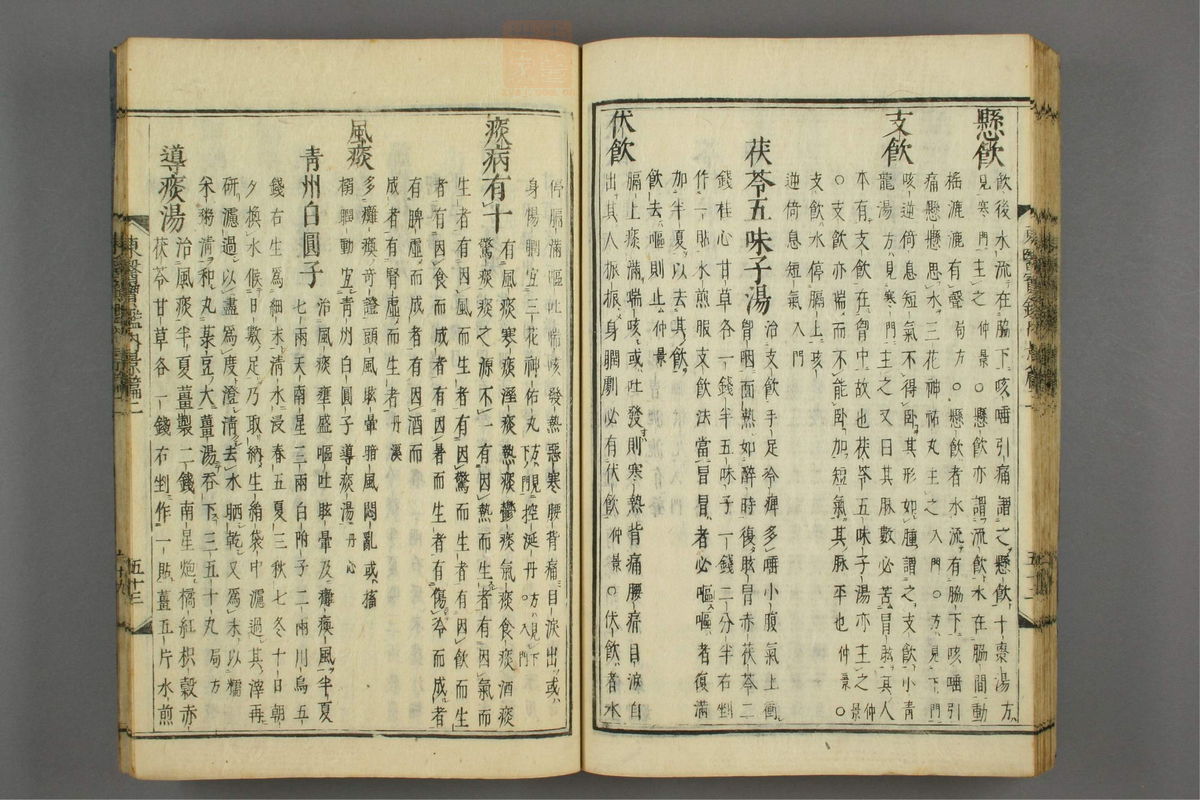 懸飮
飮後水流在脇下咳唾引痛謂之懸飮十棗湯方
見寒門主之仲景○懸飮亦謂流飮水在脇間動
搖漉漉有聲局方○懸飮者水流有脇下咳唾引
痛懸懸思水三花神祐丸主之入門○方見下門
支飮
咳逆倚息短氣不得臥其形如腫謂之支飮小青
龍湯方見寒門主之又曰其脉數必苦冒眩其人
本有支飮在胷中故也茯苓五味子湯亦主之仲景
○支飮亦喘而不能臥加短氣其脉平也仲景○
支飮水停膈上咳
逆倚息短氣入門
茯苓五味子湯
治支飮手足冷痺多唾小腹氣上衝
胷咽面熱如醉時復眩冒赤茯苓二
錢桂心甘草各一錢半五味子一錢二分半右剉
作一貼水煎服支飮法當冒冒者必嘔嘔者復滿
加半夏以去其飮
飮去嘔則止仲景
伏飮
膈上痰滿喘咳或吐發則寒熱背痛腰疼目淚自
出其人振振身瞤劇必有伏飮仲景○伏飮者水
停膈滿嘔吐喘咳發熱惡寒腰背痛目淚出或
身惕瞤宜三花神佑丸方見下門控涎丹方見下○入門
痰病有十
有風痰寒痰濕痰熱痰鬱痰氣痰食痰酒痰
驚痰痰之源不一有因熱而生者有因氣而
生者有因風而生者有因驚而生者有因飮而生
者有因食而成者有因暑而生者有傷冷而成者
有脾虛而成者有因酒而
成者有腎虛而生者丹溪
風痰
多癱瘓奇證頭風眩暈暗風悶亂或搐
搦瞤動宜青州白圓子導痰湯丹心
青州白圓子
治風痰壅盛嘔吐眩暈及癱瘓風半夏
七兩天南星三兩白附子二兩川烏五
錢右生爲細末清水浸春五夏三秋七冬十日朝
夕換水候日數足乃取納生絹袋中濾過其滓再
研濾過以盡爲度澄清去水晒乾又爲末以糯
米粥清和丸菉豆大薑湯呑下三五十丸局方
導痰湯
治風痰半夏薑製二錢南星炮橘紅枳殼赤
茯苓甘草各一錢右剉作一貼薑五片水煎
東醫寶鑑內景篇二
五十三